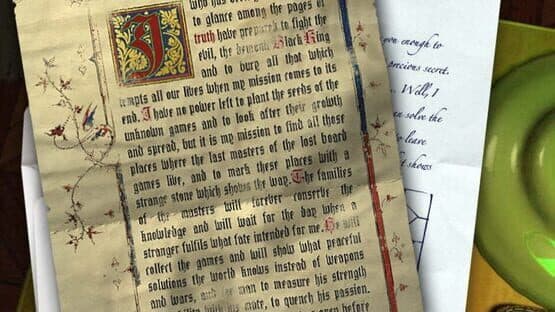 who has been
to glance among the pages of
truth have prepared to fight the
evil, the demonic Black King
and to bury all that which
tempts all our lives when my mission comes to its
end. I have no power left to plant the seeds of the
unknown games and to look after their growth
and spread, but it is my mission to find all those
places where the last masters of the lost board
games live, and to mark these places with a
strange stone which shows the way. The families
of the masters will forever conserve the
knowledge and will wait for the day when a
stranger fulfils what fate intended for me. He will
collect the games and will show what peaceful
solutions the world knows instead of weapons
and wars, and man to measure his strength
his mate, to quench his passion.
open before
you enough to
precious secret.
... Well, I
solve the
to leave
t shows